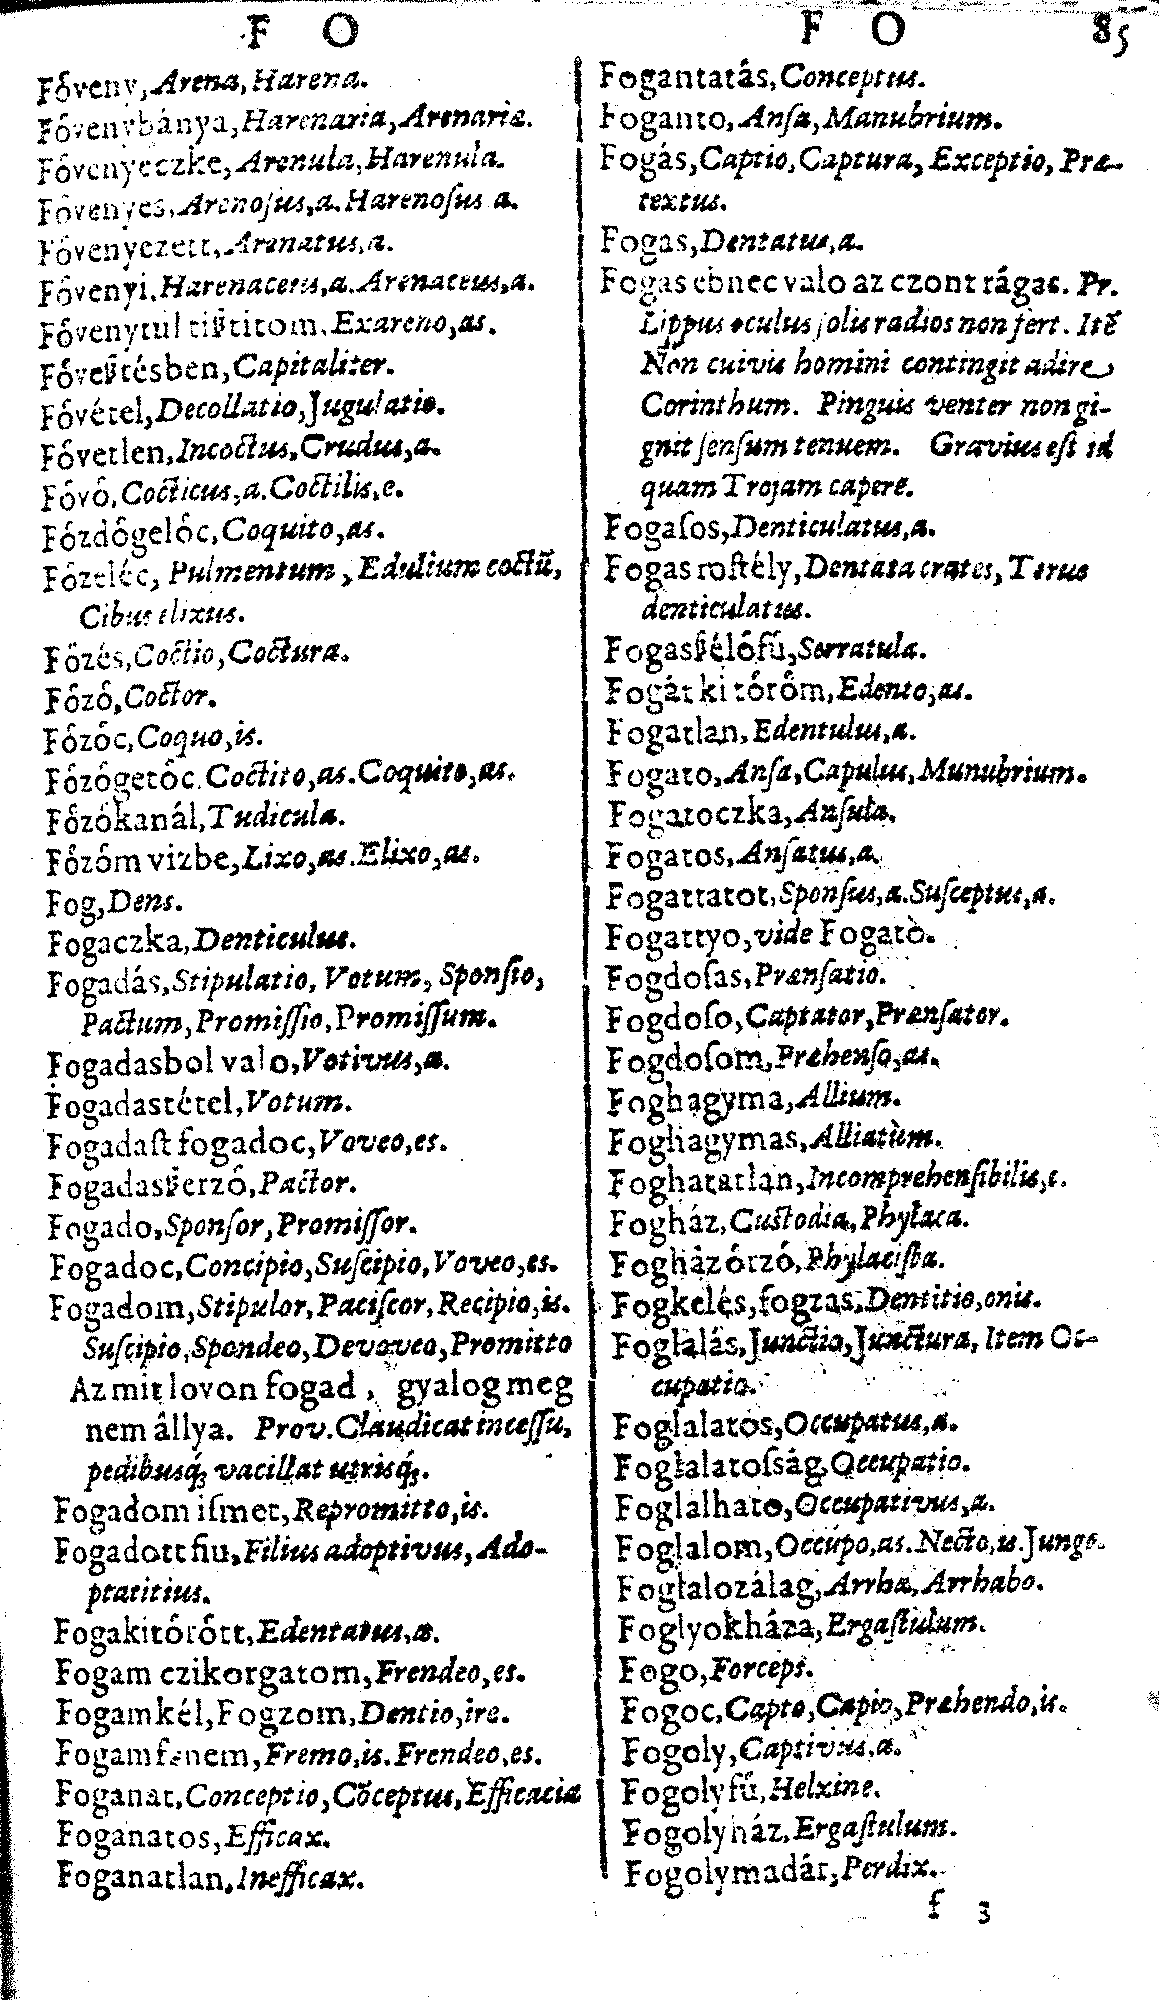 F O
Fóveny, Arena, Harena.
Fóvenybánya, Harenaria, Arenaria.
Fóvenyeczke, Arenula, Harenula.
Fóvenyes, Arenosus, a. Harenosus a.
Fóvenyezett, Arenatus, a.
Fóvenyi, Harenaceus, a. Arenaceus, a.
Fóvenytúl tißtitom, Exareno, as.
Fóveßtésben, Capitaliter.
Fóvétel, Decollatio, Jugulatio.
Fóvetlen, Incoctus, Crudus, a.
Fóvó, Cocticus, a. Coctilis, e.
Fózdôgelóc, Coquito, as.
Fózeléc, Pulmentum, Edulium coctũ,
Cibus elixus.
Fózés, Coctio, Coctura.
Fózó, Coctor.
Fózóc, Coquo, is.
Fózógetóc. Coctito, as. Coquito, as.
Fózókanál, Tudicula.
Fózóm vizbe, Lixo, as. Elixo, as.
Fog, Dens.
Fogaczka, Denticulus.
Fogadás, Stipulatio, Votum, Sponſio,
Pactum, Promiſſio, Promiſſum.
Fogadasbol valo, Votivus, a.
Fogadastétel, Votum.
Fogadaſt fogadoc, Voveo, es.
Fogadasßerzó, Pactor.
Fogado, Sponſor, Promiſſor.
Fogadoc, Concipio, Suſcipio, Voveo, es.
Fogadom, Stipulor, Paciſcor, Recipio, is.
Suſcipio, Spondeo, Devoveo, Promitto
Az mit lovon fogad, gyalog meg
nem âllya. Prov. Claudicat inceſſu,
pedibusq́; vacillat utrisq́;.
Fogadom iſmet, Repromitto, is.
Fogadott fiu, Filius adoptivus, Ado-
ptatitius.
Fogakitórótt, Edentatus, a.
Fogam czikorgatom, Frendeo, es.
Fogamkél, Fogzom, Dentio, ire.
Fogamfenem, Fremo, is. Frendeo, es.
Foganat, Conceptio, Cõceptus, Efficacia
Foganatos, Efficax.
Foganatlan, Inefficax.
F O 85
Fogantatás, Conceptus.
Foganto, Anſa, Manubrium.
Fogás, Captio, Captura, Exceptio, Præ-
textus.
Fogas, Dentatus, a.
Fogas ebnec valo az czont rágas. Pr.
Lippus oculus ſolis radios non fert. Itẽ
Non cuivis homini contingit adire
Corinthum. Pinguis venter non gi-
gnit ſenſum tenuem. Gravius eſt id
quam Trojam capere.
Fogaſos, Denticulatus, a.
Fogas roſtély, Dentata crates, Torus
denticulatus.
Fogasßélófú, Serratula.
Fogát ki tóróm, Edento, as.
Fogatlan, Edentulus, a.
Fogato, Anſa, Capulus, Munubrium.
Fogatoczka, Anſula.
Fogatos, Anſatus, a.
Fogattatot, Sponſus, a. Suſceptus, a.
Fogattyo, vide Fogatò.
Fogdoſas, Prænſatio.
Fogdoſo, Captator, Prænſator.
Fogdoſom, Præhenſo, as.
Foghagyma, Allium.
Foghagymas, Alliatùm.
Foghatatlan, Incomprehenſibilis, e.
Fogház, Cuſtodia, Phylaca.
Fogházórzó, Phylaciſta.
Fogkelés, fogzas, Dentitio, onis.
Foglalás, Junctio, Junctura, Item Oc-
cupatio.
Foglalatos, Occupatus, a.
Foglalatoſság, Occupatio.
Foglalhato, Occupativus, a.
Foglalom, Occupo, as. Necto, is. Jungo.
Foglalozálag, Arrha, Arrhabo.
Foglyokháza, Ergaſtulum.
Fogo, Forceps.
Fogoc, Capto, Capio, Præhendo, is.
Fogoly, Captivus, a.
Fogolyfú, Helxine.
Fogolyház, Ergaſtulum.
Fogolymadár, Perdix.
f 3